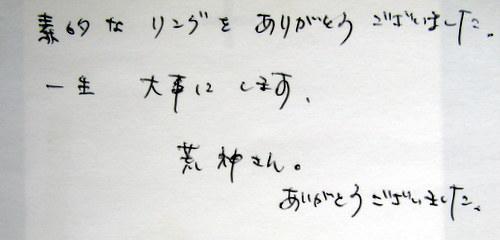 素的な リングを ありがとう ございました。
一生 大事に します、
荒神さん。
ありがとうございました、